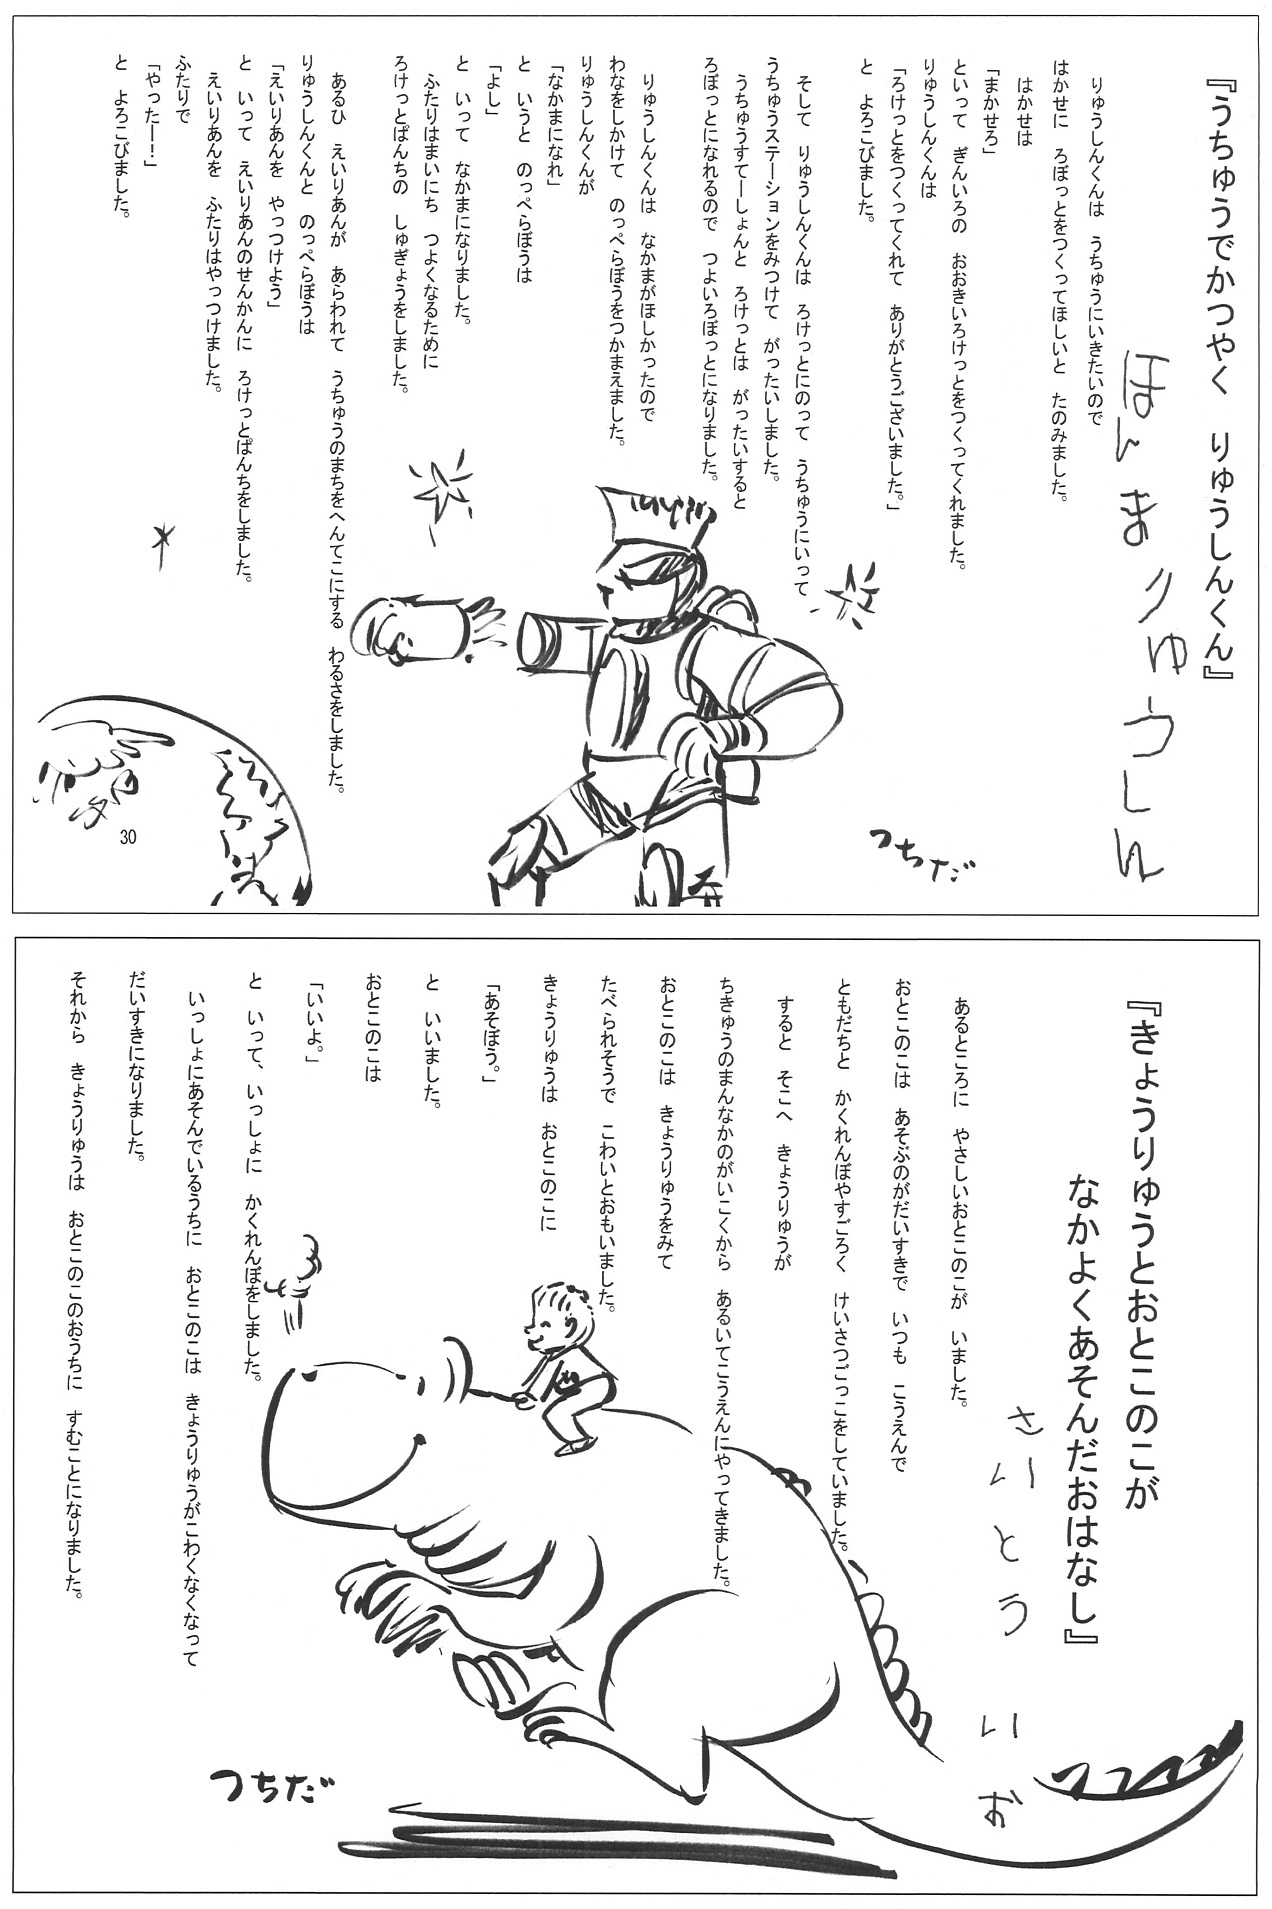 『うちゅうでかつやく　りゅうしんくん』
ほんま りゅうしん
りゅうしんくんは　うちゅうにいきたいので
はかせに　ろぼっとをつくってほしいと　たのみました。
はかせは
「まかせろ」
といって　ぎんいろの　おおきいろけっとをつくってくれました。
りゅうしんくんは
「ろけっとをつくってくれて　ありがとうございました。」
と　よろこびました。
そして　りゅうしんくんは　ろけっとにのって　うちゅうにいって
うちゅうステーションをみつけて　がったいしました。
うちゅうすてーしょんと　ろけっとは　がったいすると
ろぼっとになれるので　つよいろぼっとになりました。
りゅうしんくんは　なかまがほしかったので
わなをしかけて　のっぺらぼうをつかまえました。
りゅうしんくんが
「なかまになれ」
と　いうと　のっぺらぼうは
「よし」
と　いって　なかまになりました。
ふたりはまいにち　つよくなるために
ろけっとぱんちの　しゅぎょうをしました。
あるひ　えいりあんが　あらわれて　うちゅうのまちをへんてこにする　わるさをしました。
りゅうしんくんと　のっぺらぼうは
「えいりあんを　やっつけよう」
と　いって　えいりあんのせんかんに　ろけっとぱんちをしました。
えいりあんを　ふたりはやっつけました。
ふたりで
「やったー！」
と　よろこびました。
つちだ
30
『きょうりゅうとおとこのこが
なかよくあそんだおはなし』
さいとう いお
あるところに　やさしいおとこのこが　いました。
おとこのこは　あそぶのがだいすきで　いつも　こうえんで
ともだちと　かくれんぼやすごろく　けいさつごっこをしていました。
すると　そこへ　きょうりゅうが
ちきゅうのまんなかのがいこくから　あるいてこうえんにやってきました。
おとこのこは　きょうりゅうをみて
たべられそうで　こわいとおもいました。
きょうりゅうは　おとこのこに
「あそぼう。」
と　いいました。
おとこのこは
「いいよ。」
と　いって、いっしょに　かくれんぼをしました。
いっしょにあそんでいるうちに　おとこのこは　きょうりゅうがこわくなくなって
だいすきになりました。
それから　きょうりゅうは　おとこのこのおうちに　すむことになりました。
つちだ